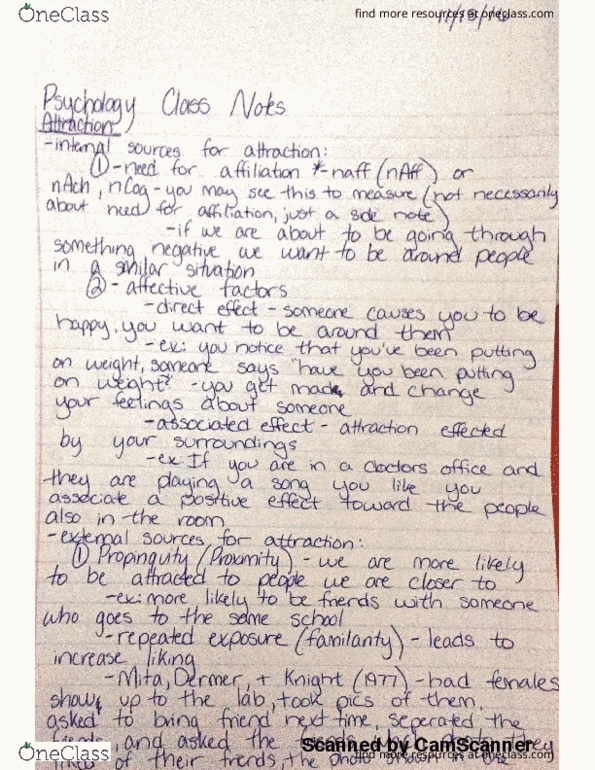 OneClass
find more resources at oneclass.com
Psychology Class Notes
Attraction
-internal sources for attraction:
① -need for affiliation *-naff (nAff) or
nAch, nCog - you may see this to measure (not necessarily
about need for affiliation, just a side note)
-if we are about to be going through
something negative we want to be around people
in a similar situation
② - affective factors
-direct effect - someone causes you to be
happy, you want to be around them
-ex: you notice that you've been putting
on weight, someone says "have you been putting
on weight?" -you get made and change
your feelings about someone
-associated effect - attraction effected
by your surroundings
-ex: If you are in a doctors office and
they are playing a song you like you
associate a positive effect toward the people
also in the room
-external sources for attraction:
① Propinquity (Proximity) - we are more likely
to be attracted to people we are closer to
-ex: more likely to be friends with someone
who goes to the same school
-repeated exposure (familarity) - leads to
increase liking
-Mita, Dermer, + Knight (1977) - had females
show up to the lab, took pics of them,
asked to bring friend next time, seperated the
and asked the
Scanned by CamScanner
of their friends, the photo
OneClass
find more resources at oneclass.com